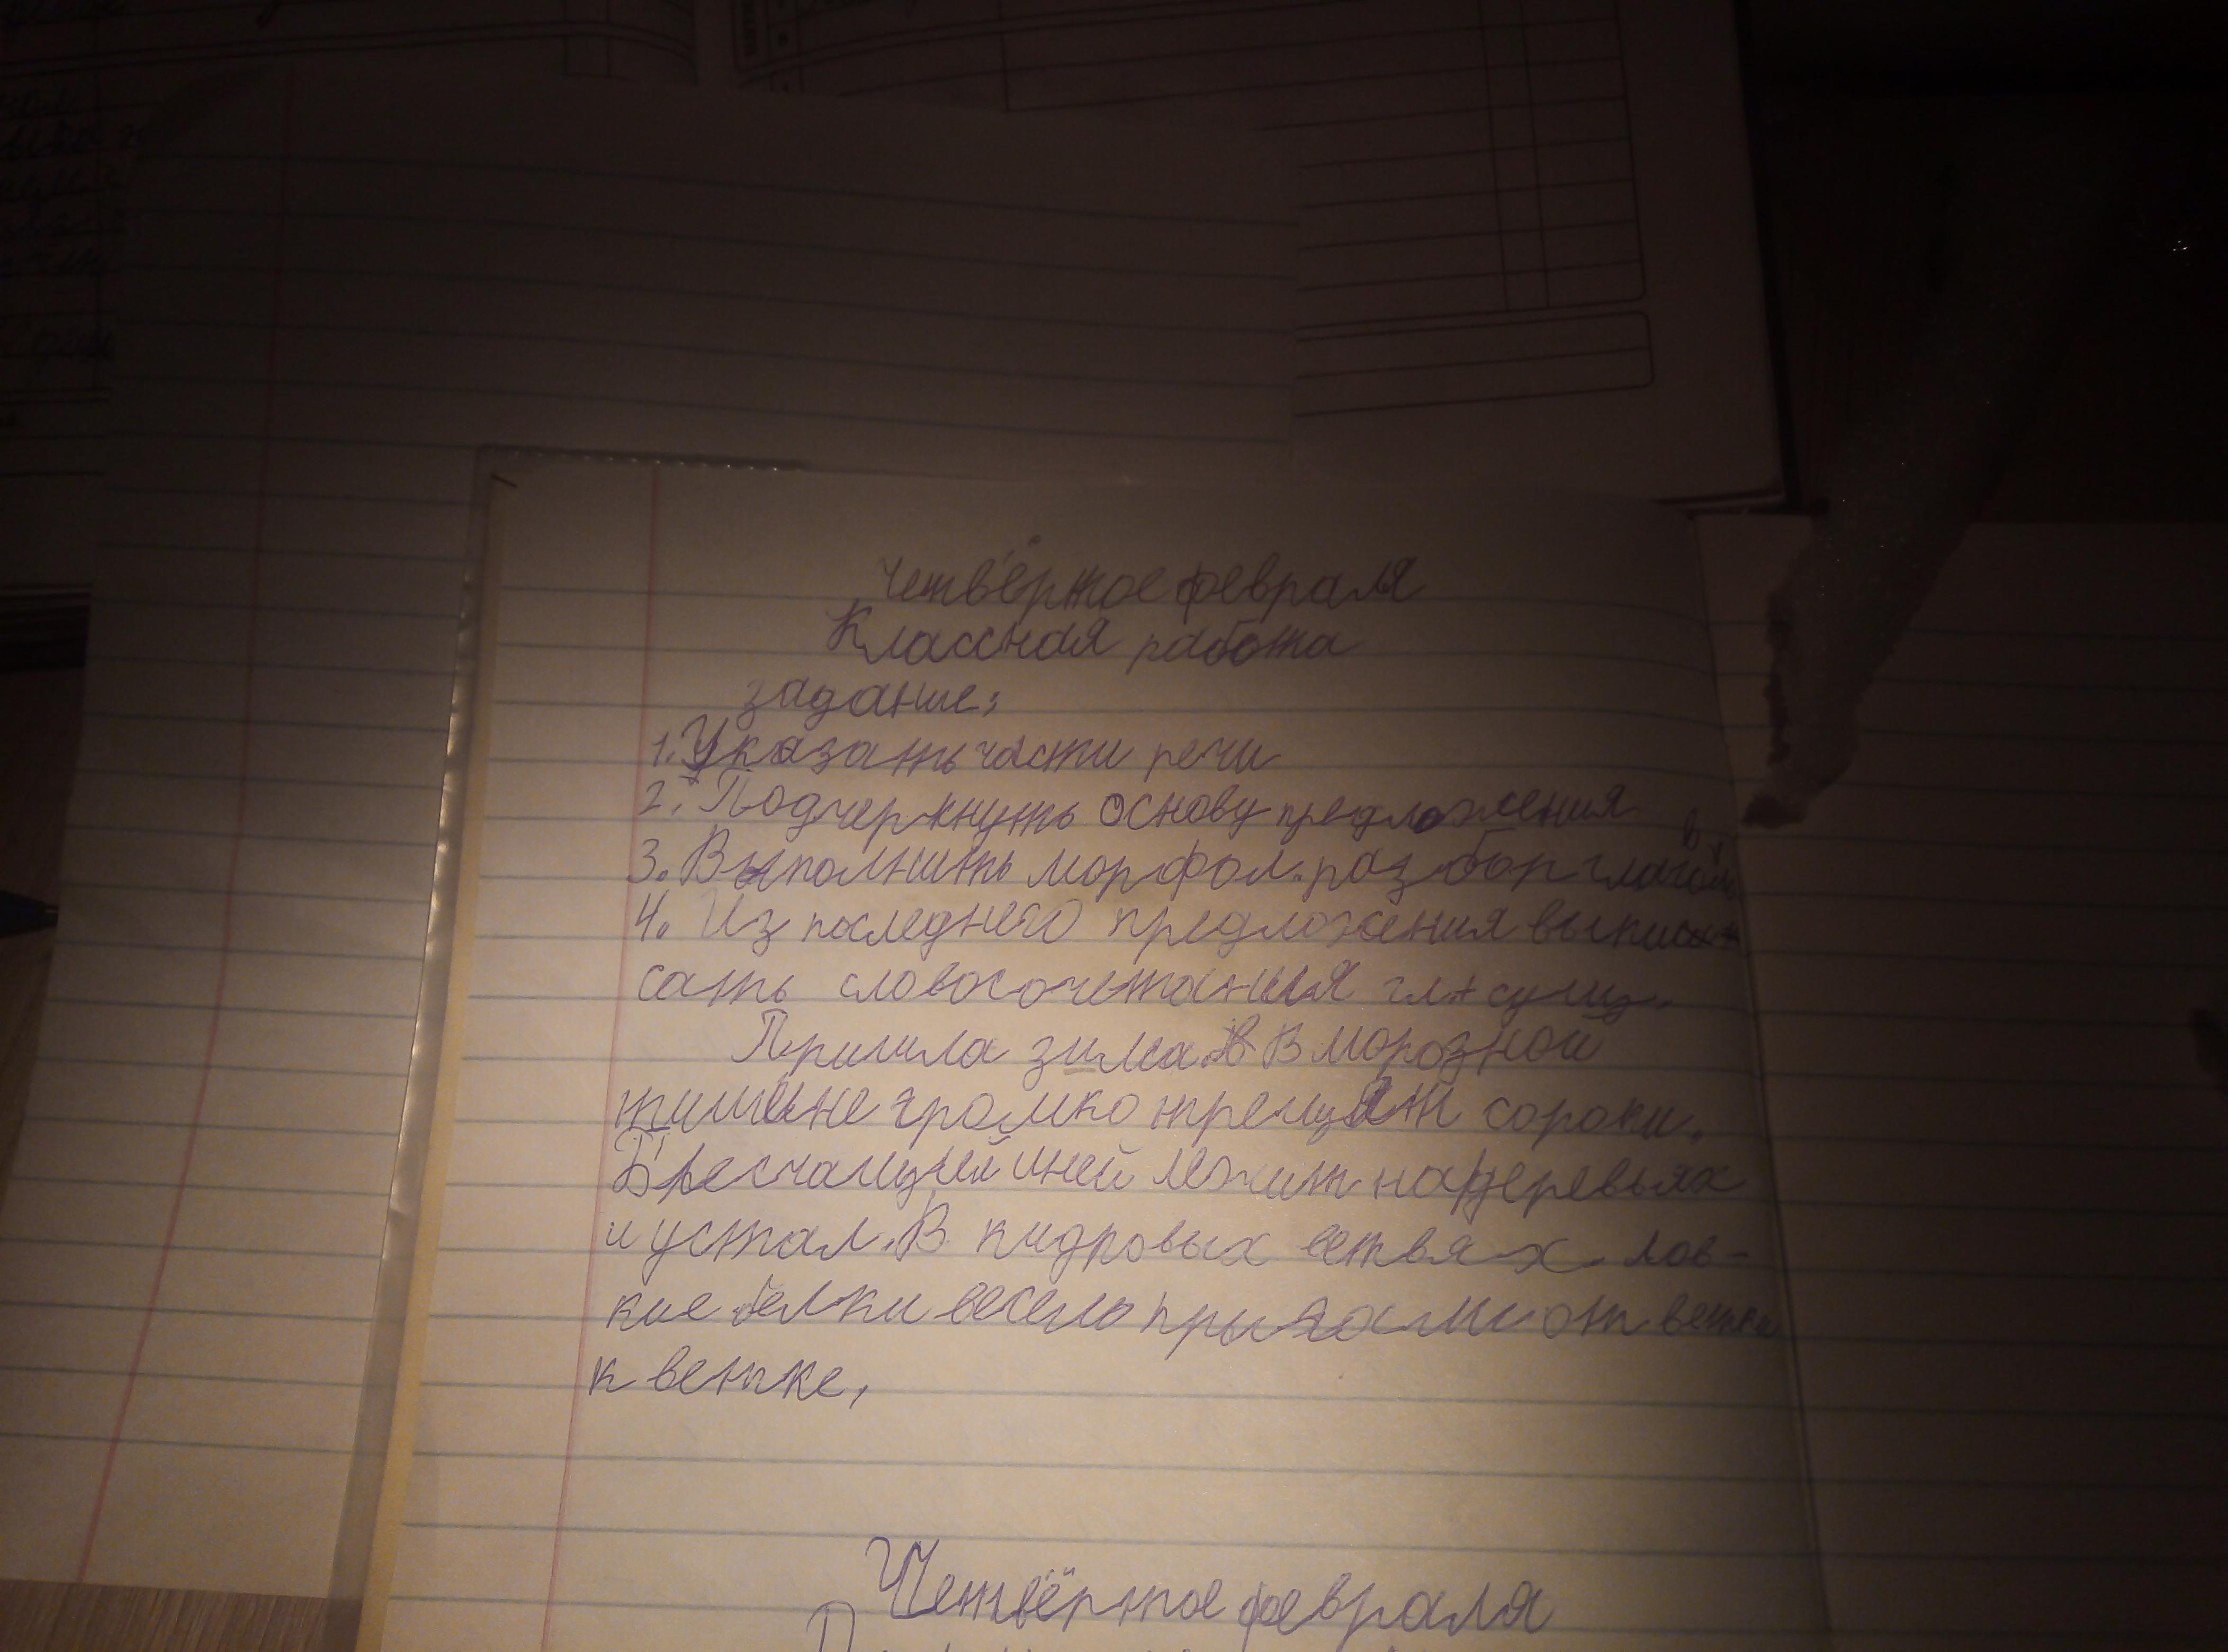 четвёртое февраля
Классная работа
задание:
1. Указать части речи
2. Подчеркнуть основу предложения
3. Выполнить морфол. разбор глагол
4. Из последнего предложения выпи
сать словосочетания гл + сущ.
Пришла зима. В морозной
тишине громко трещат сороки.
иней лежит на деревьях
и устал. В кидровых ветвях лов-
кие белки весело прыгали от ветки
к ветке,
Четвёртое февраля